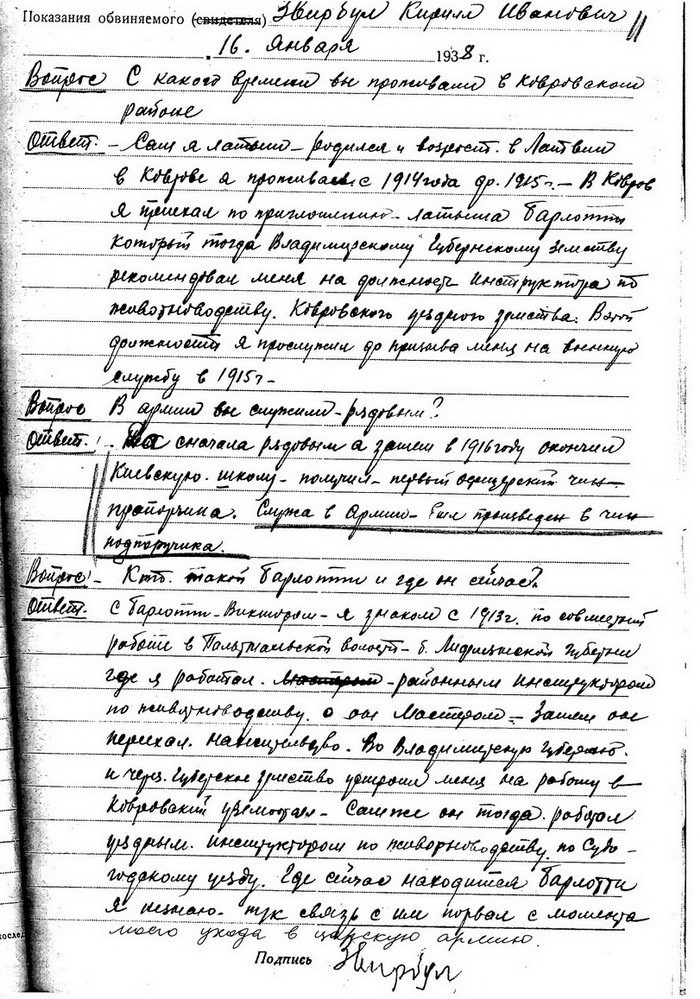 11
Показания обвиняемого (свидетеля) Звирбул Кирилл Иванович
16. Января 1938 г.
Вопрос С какого времени вы проживали в Ковровском
районе
Ответ. - Сам я латыш - родился и возрост. в Латвии
в Коврове я проживаем с 1914 года др. 1915 г. - В Ковров
я приехал по приглашению - латыша Барлотти
который тогда Владимирскому Губернскому Земству
рекомендовал меня на должность инструктора по
животноводству. Ковровского уездного земства. В этой
должности я прослужил до призыва меня на военную
службу в 1915 г -
Вопрос В армии вы служили - рядовым?
Ответ. Да сначала рядовым а затем в 1916 году окончил
Киевскую. школу - получил - первый офицерский чин -
прапорщика. Служа в Армии - был произведен в чин
подпоручика.
Вопрос - Кто. такой Барлотти и где он сейчас?
Ответ. С Барлотти - Виктором - я знаком с 1913 г. по совместной
работе в волости - б. Лифляндской Губернии
где я работал. - районным инструктором
по животноводству. а он Мастером - Затем он
переехал. на жительство. Во Владимирскую Губернию.
и через. Губернское земство устроил меня на работу в
Ковровский - Сам же он тогда. работал
уездным. инструктором по животноводству. по Судо-
годскому уезду. Где сейчас находится Барлотти
я незнаю - тук связь с им порвал с момента
моего ухода в царскую армию.
Подпись Звирбул